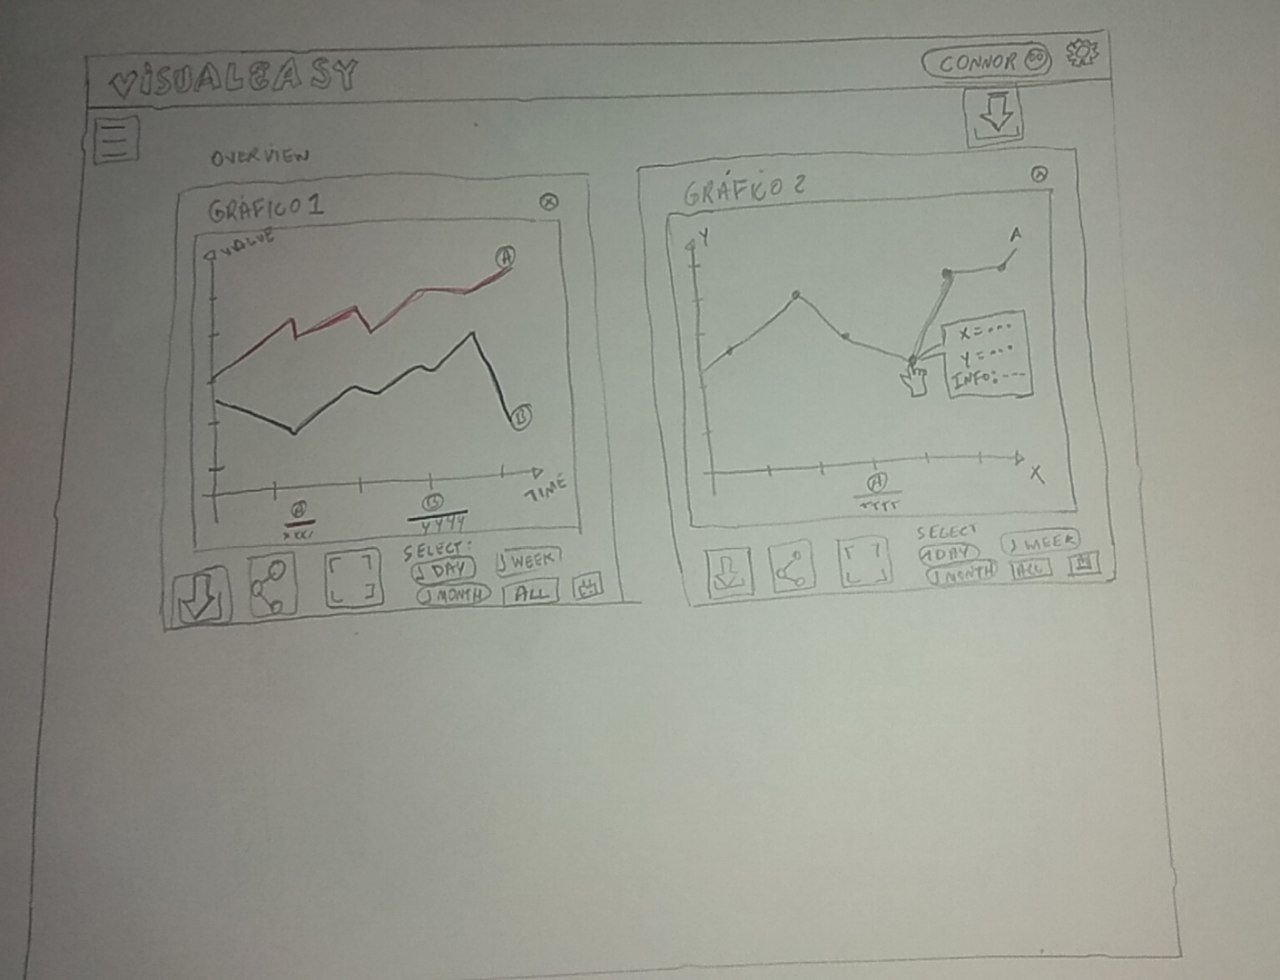 VISUALEASY
CONNOR
OVERVIEW
GRÁFICO 1
VALUE
A
B
TIME
A
B
YYYY
SELECT:
1 DAY
1 WEEK
1 MONTH
ALL
GRÁFICO 2
Y
A
X=...
Y=...
INFO:---
X
A
SELECT
1 DAY
1 WEEK
1 MONTH
ALL